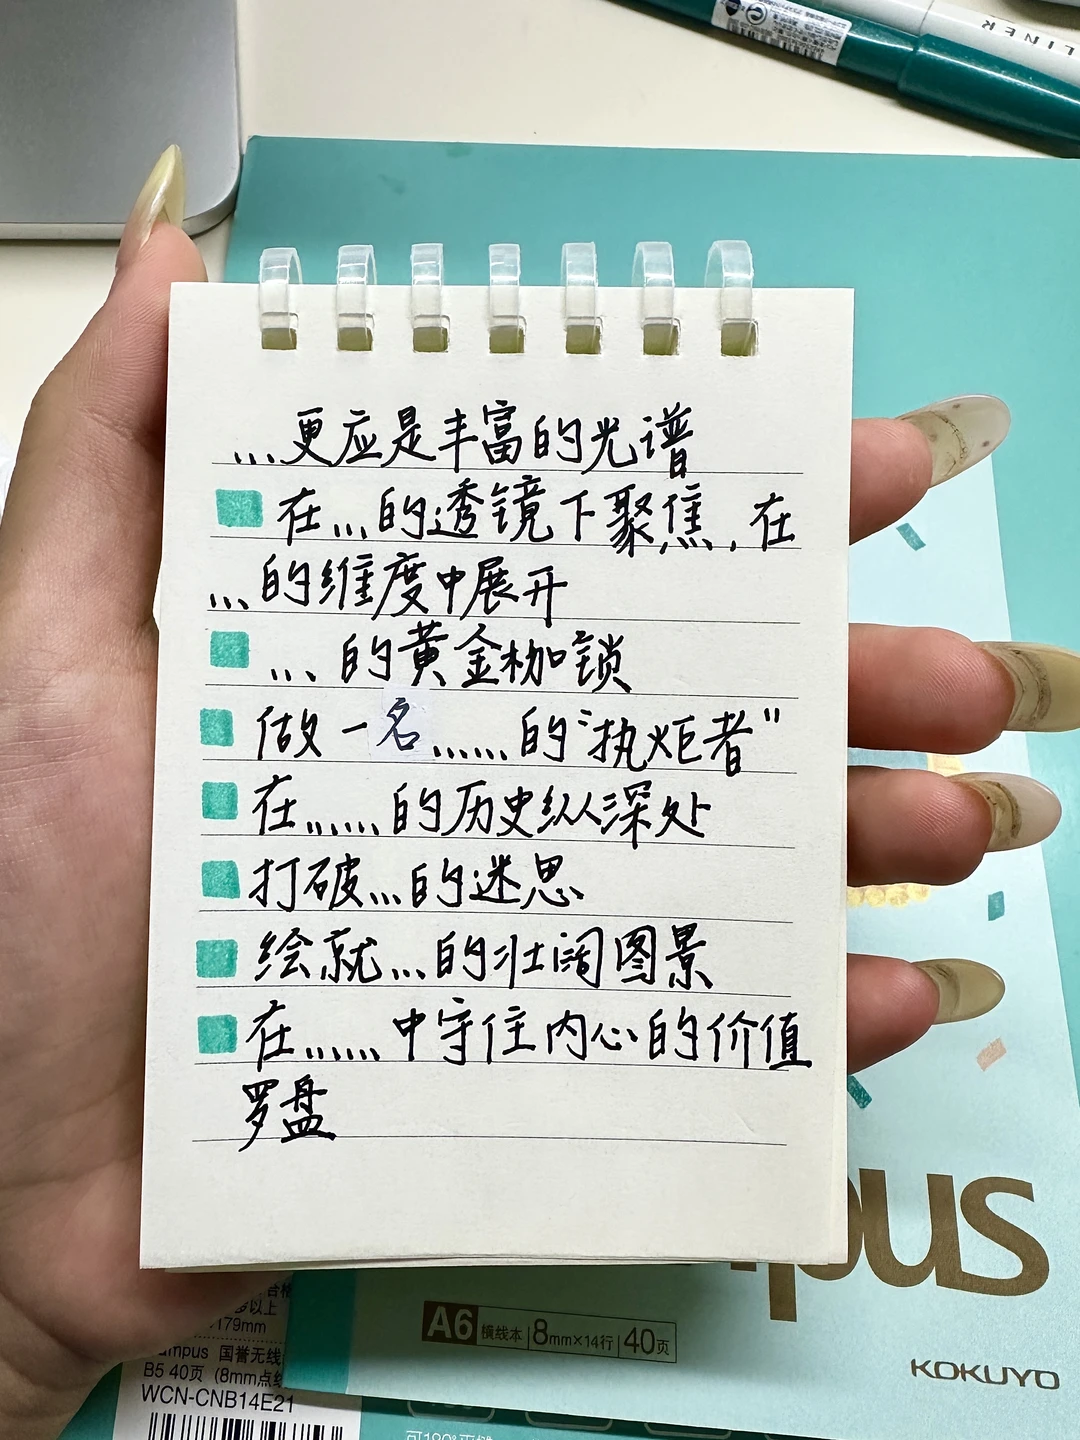 LINER
...更应是丰富的光谱
在...的透镜下聚焦,在
...的维度中展开
...的黄金枷锁
做一名......的“执炬者”
在......的历史纵深处
打破...的迷思
绘就...的壮阔图景
在......中守住内心的价值
罗盘
pus
A6 横线本 8mm×14行 40页
KOKUYO
合格
岁以上
179mm
ampus 国誉无线
B5 40页 (8mm点线
WCN-CNB14E21
可180°平摊